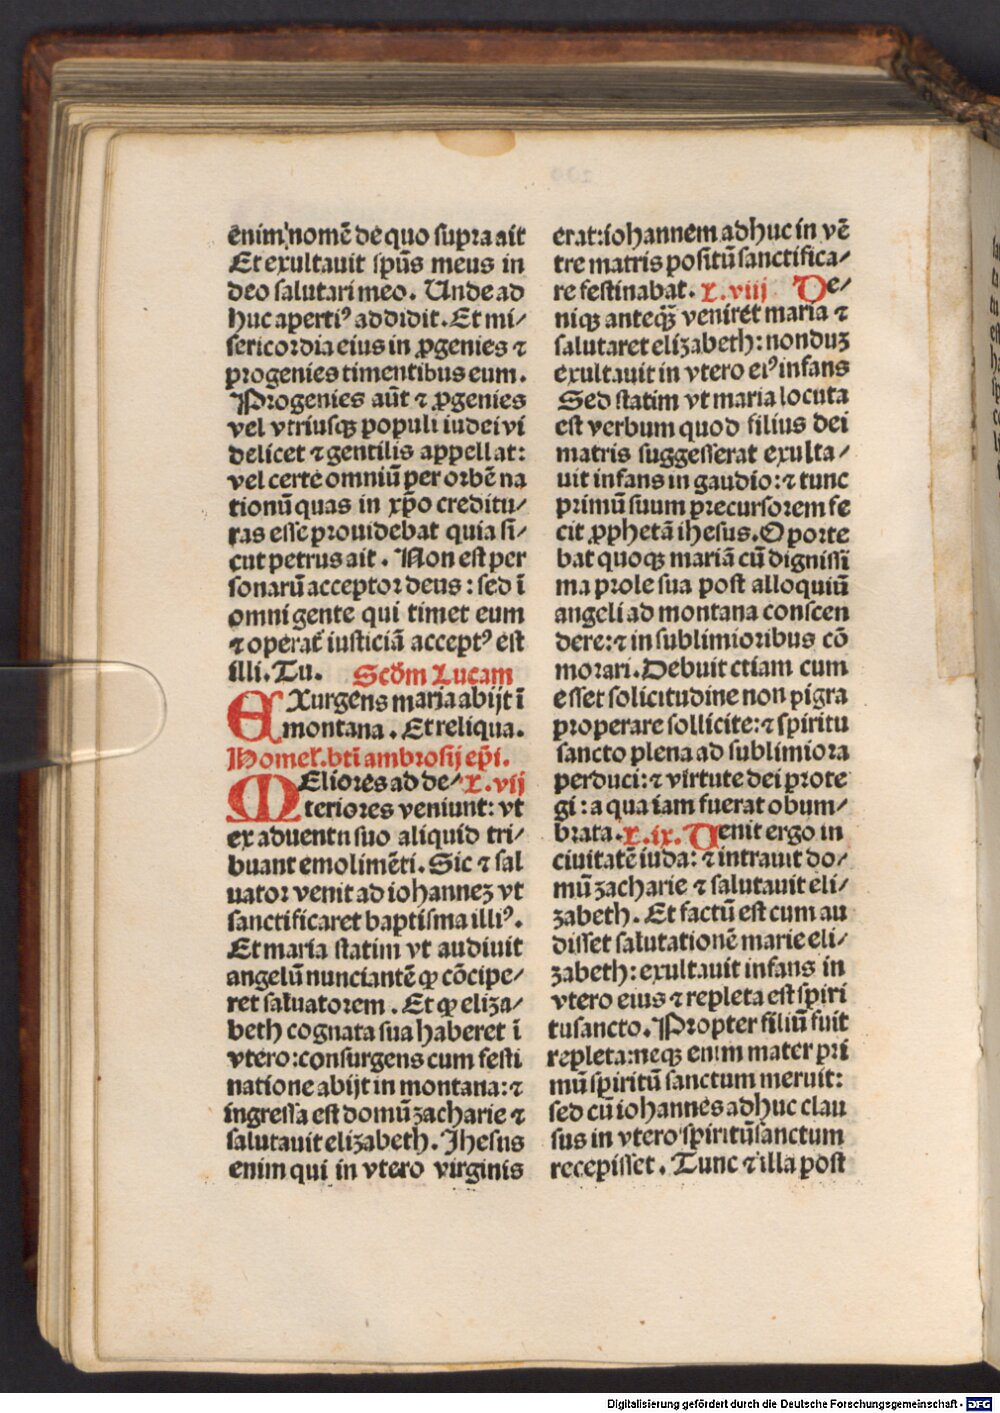 enim nomē de quo supra ait
Et exultauit spūs meus in
deo salutari meo. Unde ad
huc aperti⁹ addidit. Et mi/
sericordia eius in ꝓgenies ⁊
progenies timentibus eum.
Progenies aūt ⁊ ꝓgenies
vel vtriusqꝫ populi iudei vi
delicet ⁊ gentilis appellat:
vel certe omniū per orbē na
tionū quas in xp̄o creditu/
ras esse prouidebat quia si/
cut petrus ait. Non est per
sonarū acceptor deus: sed ī
omni gente qui timet eum
⁊ operat᷑ iusticiā accept⁹ est
illi. Tu. Scd̄m Lucam
EXurgens maria abijt ī
montana. Et reliqua.
Homel᷑. bt̄i ambrosij ep̄i.
MEliores ad de/ X.vij
teriores veniunt: vt
ex aduentu suo aliquid tri/
buant emolimēti. Sic ⁊ sal
uator venit ad iohannez vt
sanctificaret baptisma illi⁹.
Et maria statim vt audiuit
angelū nunciantē ꝙ cōcipe/
ret saluatorem. Et ꝙ eliza/
beth cognata sua haberet ī
vtero: consurgens cum festi
natione abijt in montana: ⁊
ingressa est domū zacharie ⁊
salutauit elizabeth. Jhesus
enim qui in vtero virginis
erat: iohannem adhuc in vē
tre matris positū sanctifica/
re festinabat. X.viij De/
niqꝫ anteqꝫ̄ veniret maria ⁊
salutaret elizabeth: nonduz
exultauit in vtero ei⁹ infans
Sed statim vt maria locuta
est verbum quod filius dei
matris suggesserat exulta/
uit infans in gaudio: ⁊ tunc
primū suum precursorem fe
cit ꝓphetā ihesus. Oporte
bat quoqꝫ mariā cū dignissi
ma prole sua post alloquiū
angeli ad montana conscen
dere: ⁊ in sublimioribus cō
morari. Debuit etiam cum
esset solicitudine non pigra
properare sollicite: ⁊ spiritu
sancto plena ad sublimiora
perduci: ⁊ virtute dei prote
gi: a qua iam fuerat obum/
brata. X.ix. Uenit ergo in
ciuitatē iuda: ⁊ intrauit do/
mū zacharie ⁊ salutauit eli/
zabeth. Et factū est cum au
disset salutationē marie eli/
zabeth: exultauit infans in
vtero eius ⁊ repleta est spiri
tu sancto. Propter filiū fuit
repleta: neqꝫ enim mater pri
mū spiritū sanctum meruit:
sed cū iohannes adhuc clau
sus in vtero spiritū sanctum
recepisset. Tunc ⁊ illa post
Digitalisierung gefördert durch die Deutsche Forschungsgemeinschaft - DFG